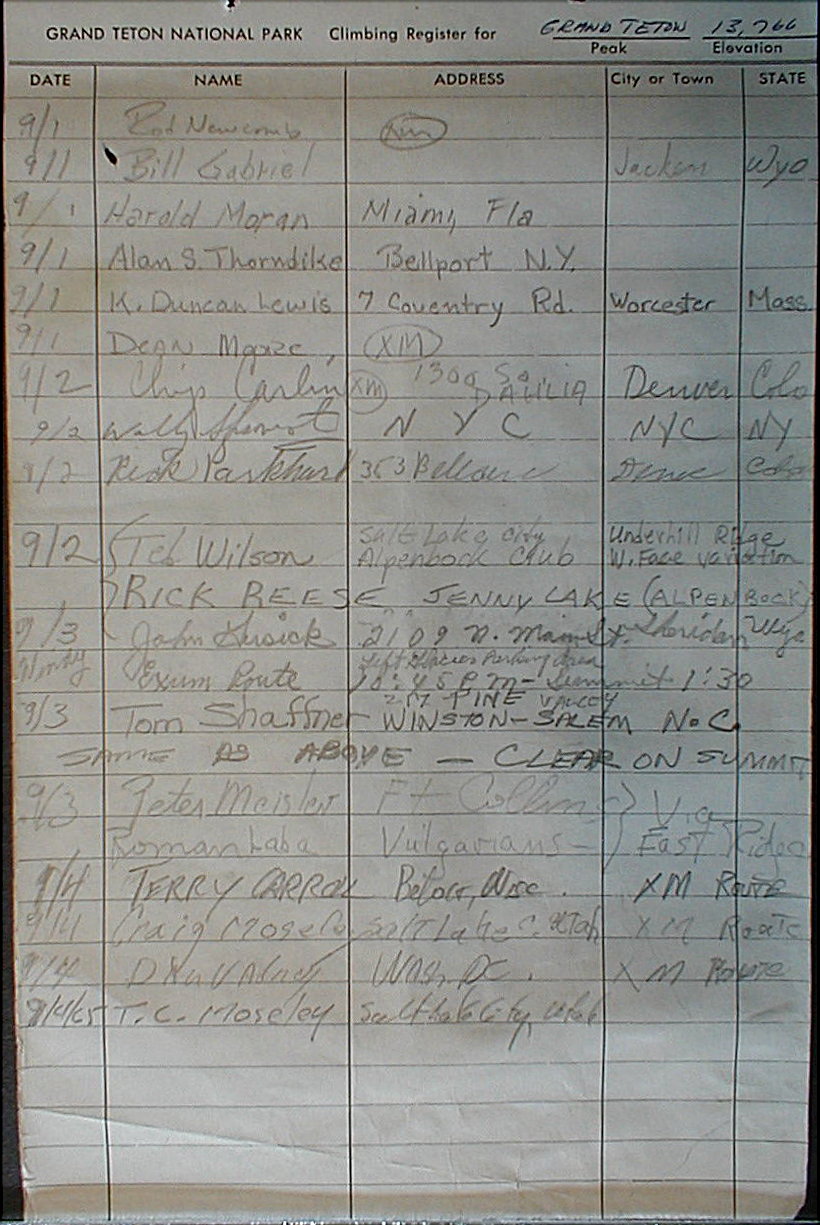 GRAND TETON NATIONAL PARK Climbing Register for GRAND TETON 13,766
Peak Elevation
DATE NAME ADDRESS City or Town STATE
9/1 Rod Newcomb XM
9/1 Bill Gabriel Jackson Wyo
9/1 Harold Moran Miami, Fla
9/1 Alan S. Thorndike Bellport N.Y.
9/1 K. Duncan Lewis 7 Coventry Rd. Worcester Mass
9/1 DEAN XM
9/2 Chip Carlin XM 1300 So Denver Colo
9/2 Wally N Y C NYC NY
9/2 Rick Parkhurst 363 Colo
9/2 Ted Wilson Salt Lake City Underhill Ridge
Alpenbock Club W. Face variation
RICK REESE JENNY LAKE (ALPENBOCK)
9/3 John 2109 N. Main St. Sheridan Wyo
Windy Left Glacier Parking Area
Exum Route 10:45 P.M- Summit 1:30
217 PINE VALLEY
9/3 Tom Shaffner WINSTON-SALEM N.C.
SAME AS ABOVE — CLEAR ON SUMMIT
9/3 Peter Ft Collins } Via
Roman Laba Vulgarians- East Ridge
9/4 TERRY CARROLL Beloit, Wisc. XM ROUTE
9/4 Craig Salt Lake C. Utah XM Route
9/4 Wash. DC. XM ROUTE
9/4/65 T. C. Moseley Salt Lake City, Utah